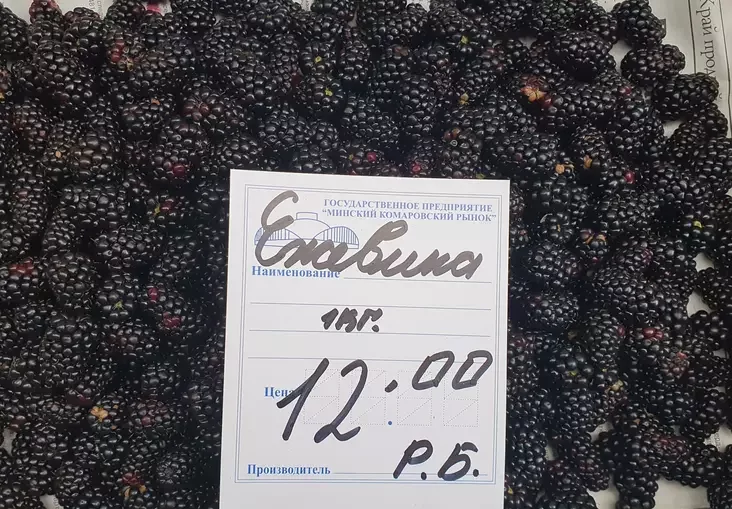 Край прод
ГОСУДАРСТВЕННОЕ ПРЕДПРИЯТИЕ
"МИНСКИЙ КОМАРОВСКИЙ РЫНОК"
Ежевика
Наименование
1кг.
Цена 12.00
Производитель Р.Б.